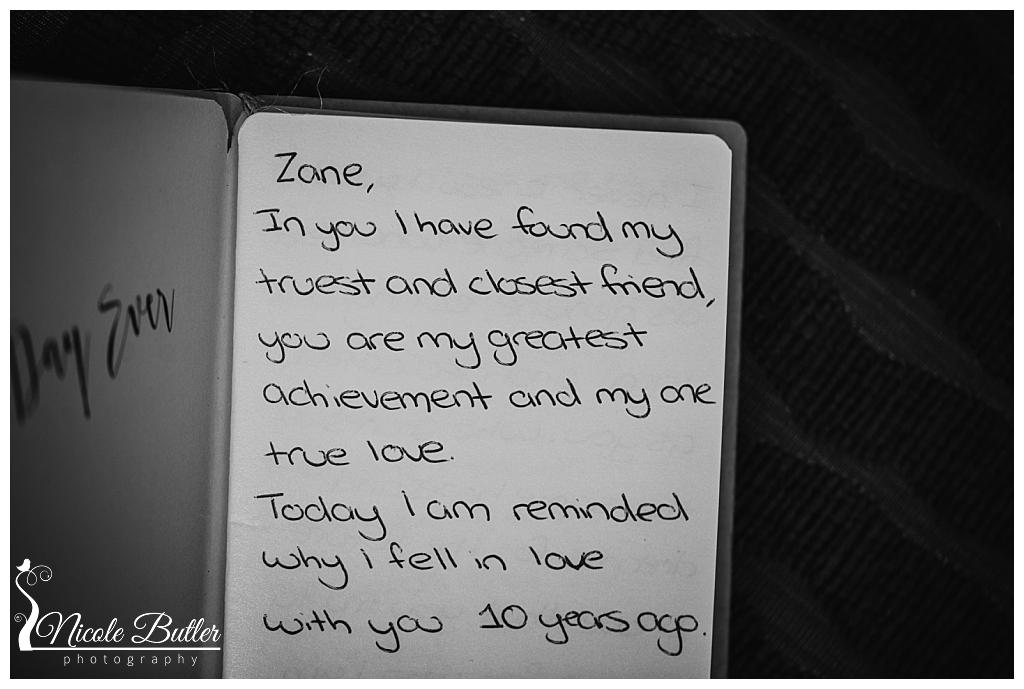 Day Ever
Zane,
In you I have found my
truest and closest friend,
you are my greatest
achievement and my one
true love.
Today I am reminded
why i fell in love
with you 10 years ago.
Nicole Butler
photography